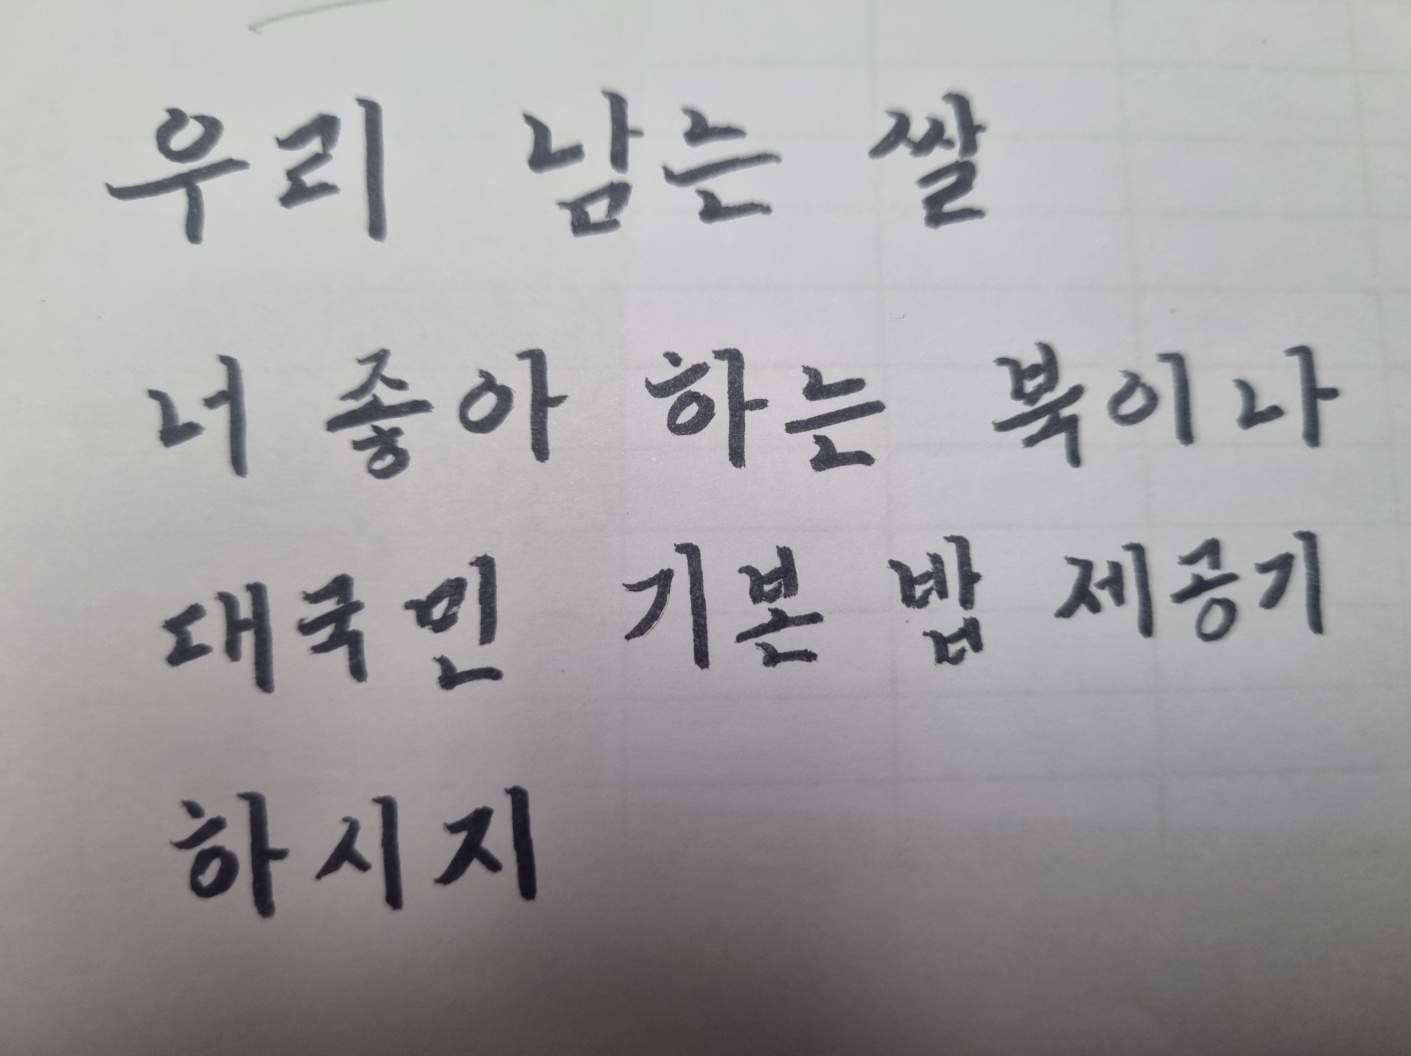 우리 남는 쌀
너 좋아 하는 북이나
대국민 기본 밥 제공기
하시지